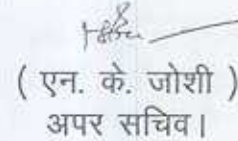 ( एन. के. जोशी )
अपर सचिव।